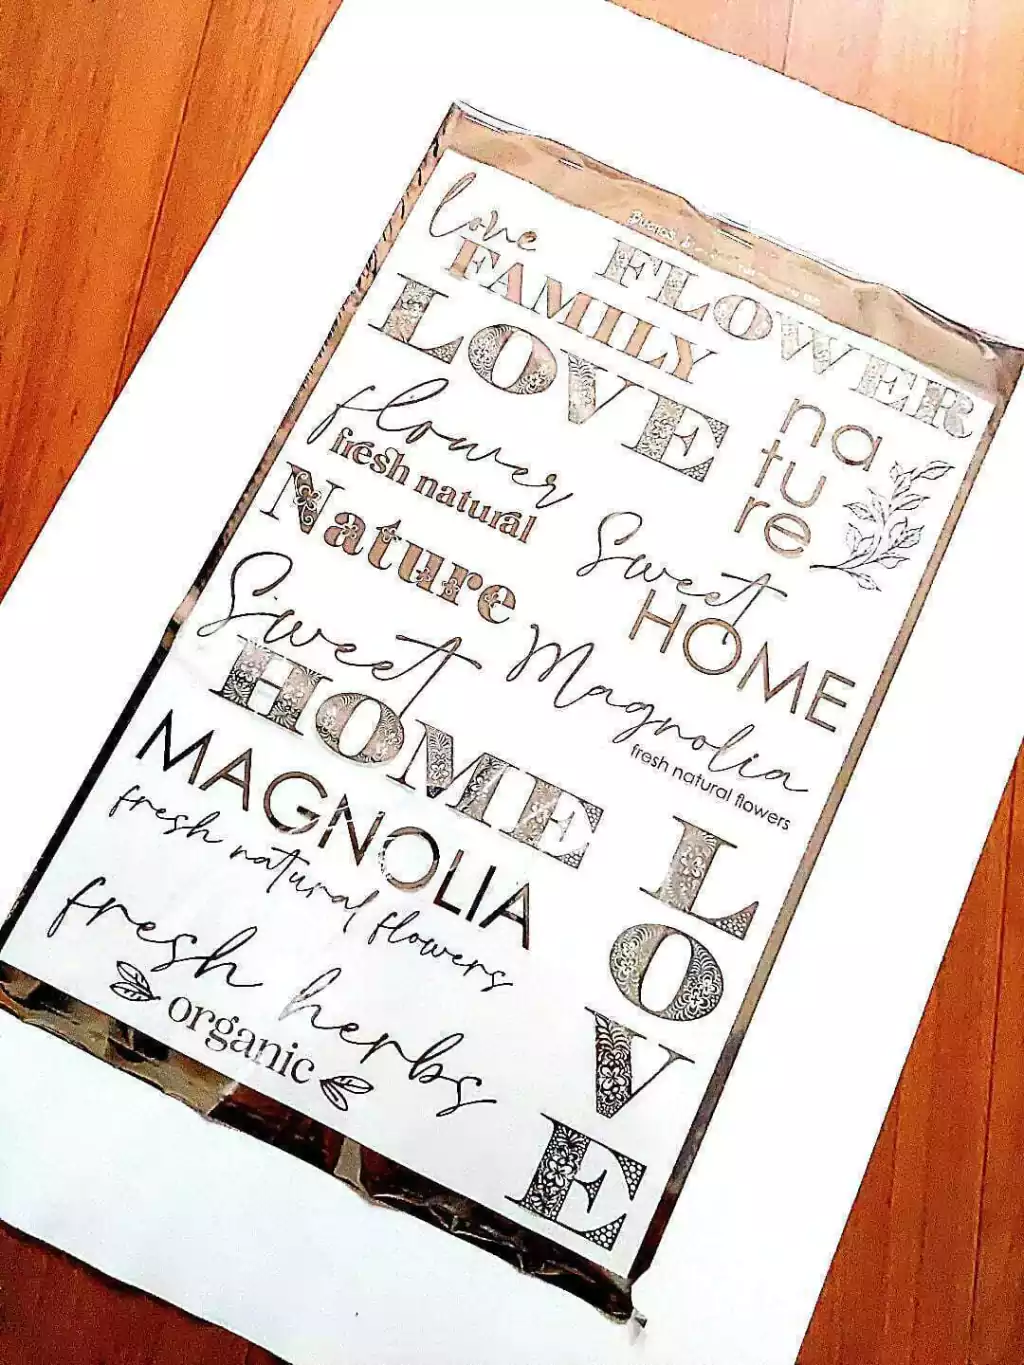 love
FLOWER
FAMILY
LOVE
flower
fresh natural
na
tu
re
Nature
Sweet
HOME
Sweet
HOME
Magnolia
fresh natural flowers
MAGNOLIA
fresh natural flowers
fresh herbs
organic
L
O
V
E